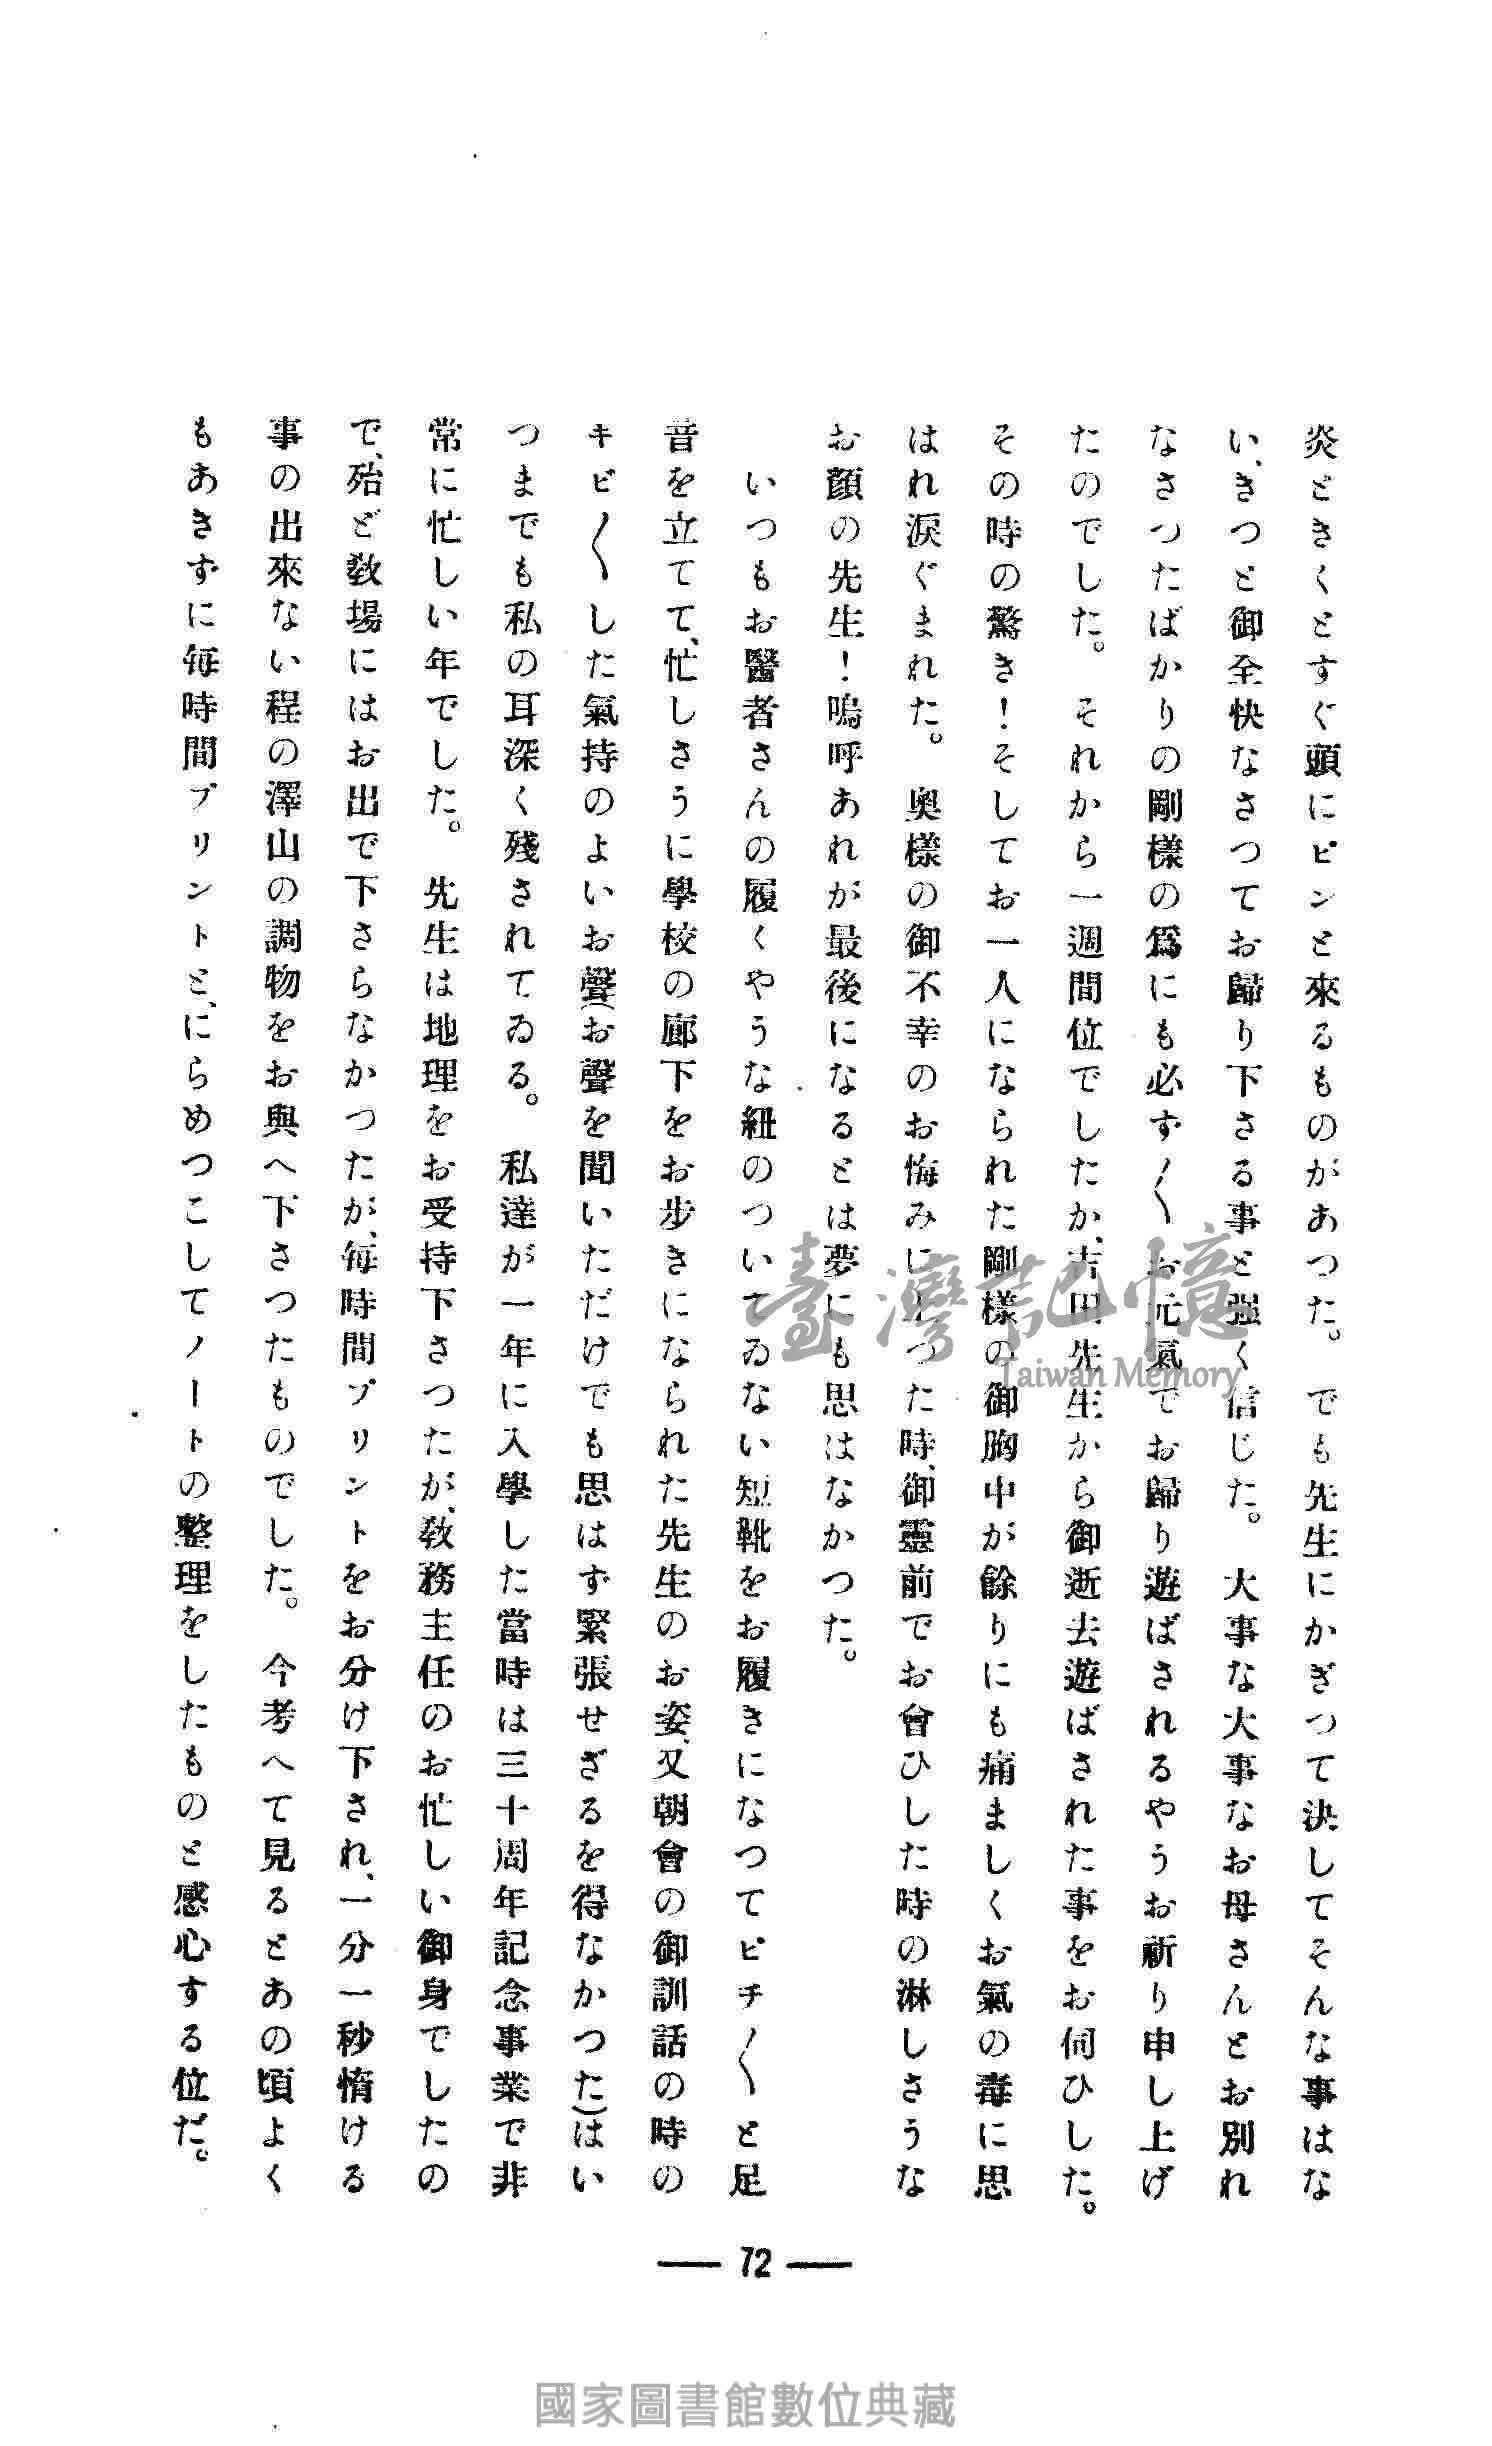 炎ときくとすぐ頭にピンと來るものがあつた。　でも先生にかぎつて決してそんな事はな
い、きつと御全快なさつてお歸り下さる事と强く信じた。　大事な大事なお母さんとお別れ
なさつたばかりの剛樣の爲にも必ず〱お元氣でお歸り遊ばされるやうお祈り申し上げ
たのでした。　それから一週間位でしたか、吉田先生から御逝去遊ばされた事をお伺ひした。
その時の驚き！そしてお一人になられた剛樣の御胸中が餘りにも痛ましくお氣の毒に思
はれ淚ぐまれた。　奥樣の御不幸のお悔みに上つた時、御靈前でお會ひした時の淋しさうな
お顏の先生！嗚呼あれが最後になるとは夢にも思はなかつた。
いつもお醫者さんの履くやうな紐のついてゐない短靴をお履きになつてピチ〱と足
音を立てて、忙しさうに學校の廊下をお步きになられた先生のお姿、又朝會の御訓話の時の
キビ〱した氣持のよいお聲（お聲を聞いただけでも思はず緊張せざるを得なかつた）はい
つまでも私の耳深く殘されてゐる。　私達が一年に入學した當時は三十周年記念事業で非
常に忙しい年でした。　先生は地理をお受持下さつたが、敎務主任のお忙しい御身でしたの
で、殆ど敎場にはお出で下さらなかつたが、每時間プリントをお分け下され、一分一秒惰ける
事の出來ない程の澤山の調物をお與へ下さつたものでした。　今考へて見るとあの頃よく
もあきずに每時間プリントと、にらめつこしてノートの整理をしたものと感心する位だ。
— 72 —
臺灣記憶
Taiwan Memory
國家圖書館數位典藏